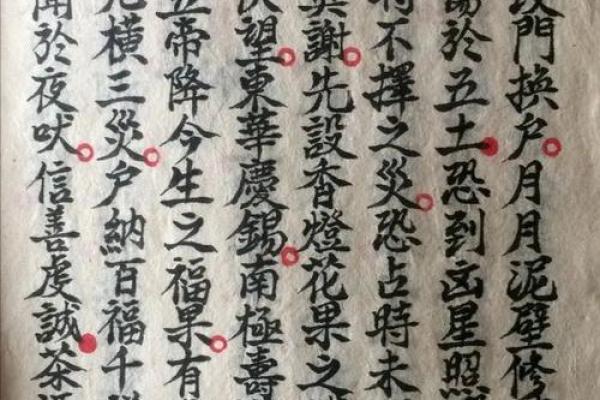 門換户月月泥壁修
於五土恐到凶星照
不擇之災恐占時未
謝先設香燈花果之
望東華慶錫南極壽
五帝降今生之福果有
橫三災户納百福千
於夜吠信善虔誠茶